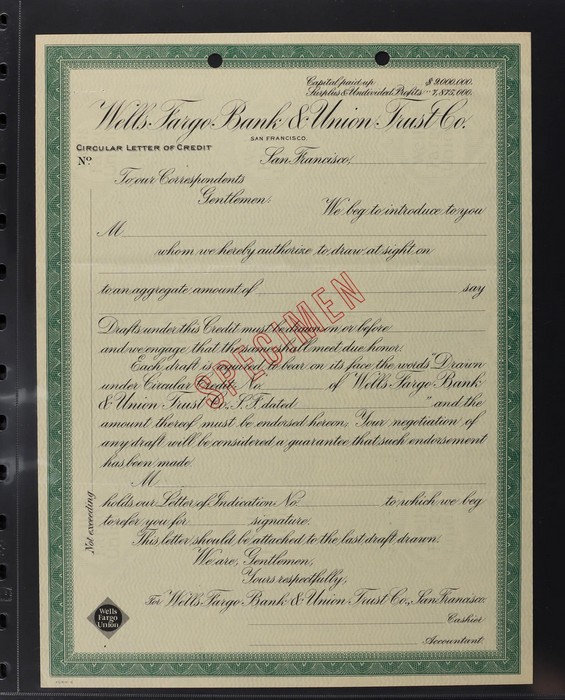 Capital paid up $9,000,000.
Surplus & Undivided Profits 7,875,000.
Wells Fargo Bank & Union Trust Co.
SAN FRANCISCO
CIRCULAR LETTER OF CREDIT
No. San Francisco,
To our Correspondents
Gentlemen: We beg to introduce to you
M
whom we hereby authorize to draw at sight on
to an aggregate amount of say
SPECIMEN
Drafts under this Credit must be drawn on or before
and we engage that the same shall meet due honor.
Each draft is required to bear on its face the words "Drawn
under Circular Credit No. of Wells Fargo Bank
& Union Trust Co., S.F. dated " and the
amount thereof must be endorsed hereon. Your negotiation of
any draft will be considered a guarantee that such endorsement
has been made.
M
holds our Letter of Indication No. to which we beg
to refer you for signature.
Not exceeding
This letter should be attached to the last draft drawn.
We are, Gentlemen,
Yours respectfully,
For Wells Fargo Bank & Union Trust Co., San Francisco.
Wells
Fargo
Union
Cashier.
Accountant.